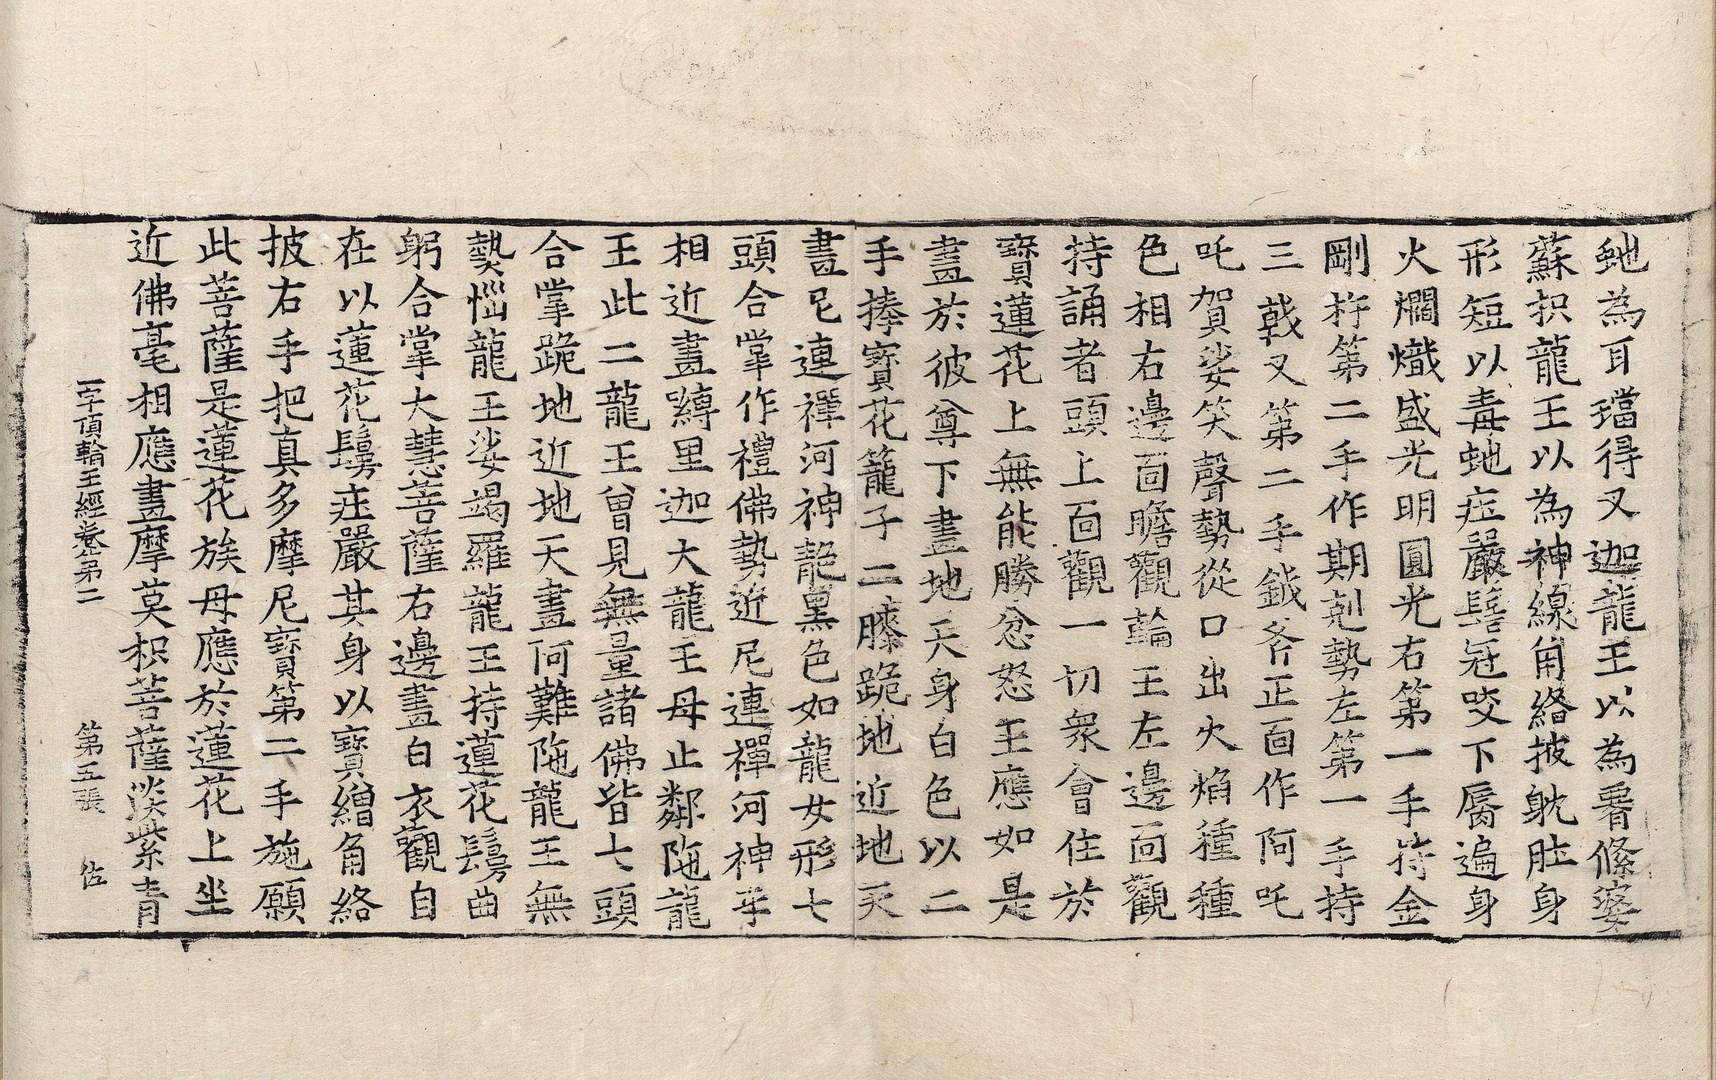 虵為耳璫得叉迦龍王以為脣絛婆
蘇枳龍王以為神線角絡披躭肚身
形短以毒虵庄嚴髻冠咬下脣遍身
火爓熾盛光明圓光右第一手持金
剛杵第二手作期剋勢左第一手持
三戟叉第二手鉞斧正面作阿吒
吒賀娑笑聲勢從口出火焰種種
色相右邊面瞻觀輪王左邊面觀
持誦者頭上面觀一切衆會住於
寶蓮花上無能勝忿怒王應如是
畫於彼尊下畫地天身白色以二
手捧寶花籠子二膝跪地近地天
畫尼連禪河神靘黑色如龍女形七
頭合掌作禮佛勢近尼連禪河神
相近畫嚩里迦大龍王母止鄰陁龍
王此二龍王曾見無量諸佛皆七頭
合掌跪地近地天畫阿難陁龍王無
𤍠惱龍王娑竭羅龍王持蓮花鬘曲
躬合掌大慧菩薩右邊畫白衣觀自
在以蓮花鬘庄嚴其身以寶繒角絡
披右手把真多摩尼寶第二手施願
此菩薩是蓮花族母應於蓮花上坐
近佛毫相應畫摩莫枳菩薩淡紫青
一字頂輪王經卷第二　第五張　佐